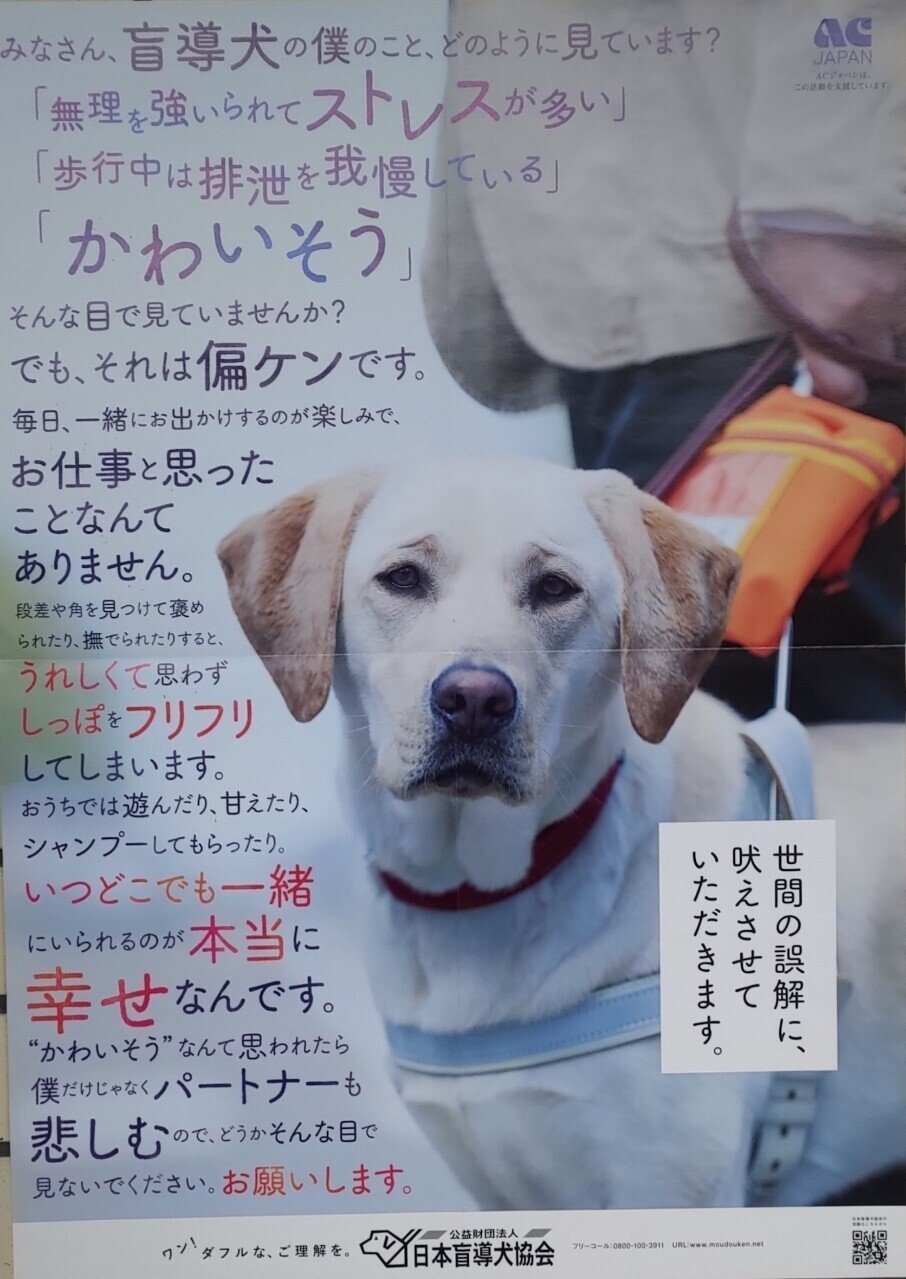 みなさん、盲導犬の僕のこと、どのように見ています?
「無理を強いられてストレスが多い」
「歩行中は排泄を我慢している」
「かわいそう」
そんな目で見ていませんか?
でも、それは偏ケンです。
毎日、一緒にお出かけするのが楽しみで、
お仕事と思った
ことなんて
ありません。
段差や角を見つけて褒め
られたり、撫でられたりすると、
うれしくて思わず
しっぽをフリフリ
してしまいます。
おうちでは遊んだり、甘えたり、
シャンプーしてもらったり。
いつどこでも一緒
にいられるのが本当に
幸せなんです。
“かわいそう”なんて思われたら
僕だけじゃなくパートナーも
悲しむので、どうかそんな目で
見ないでください。お願いします。
AC
JAPAN
ACジャパンは、
この活動を支援しています。
世間の誤解に、
吠えさせて
いただきます。
ワン!ダフルな、ご理解を。
公益財団法人
日本盲導犬協会
フリーコール:0800-100-3911 URL:www.moudouken.net
日本盲導犬協会の